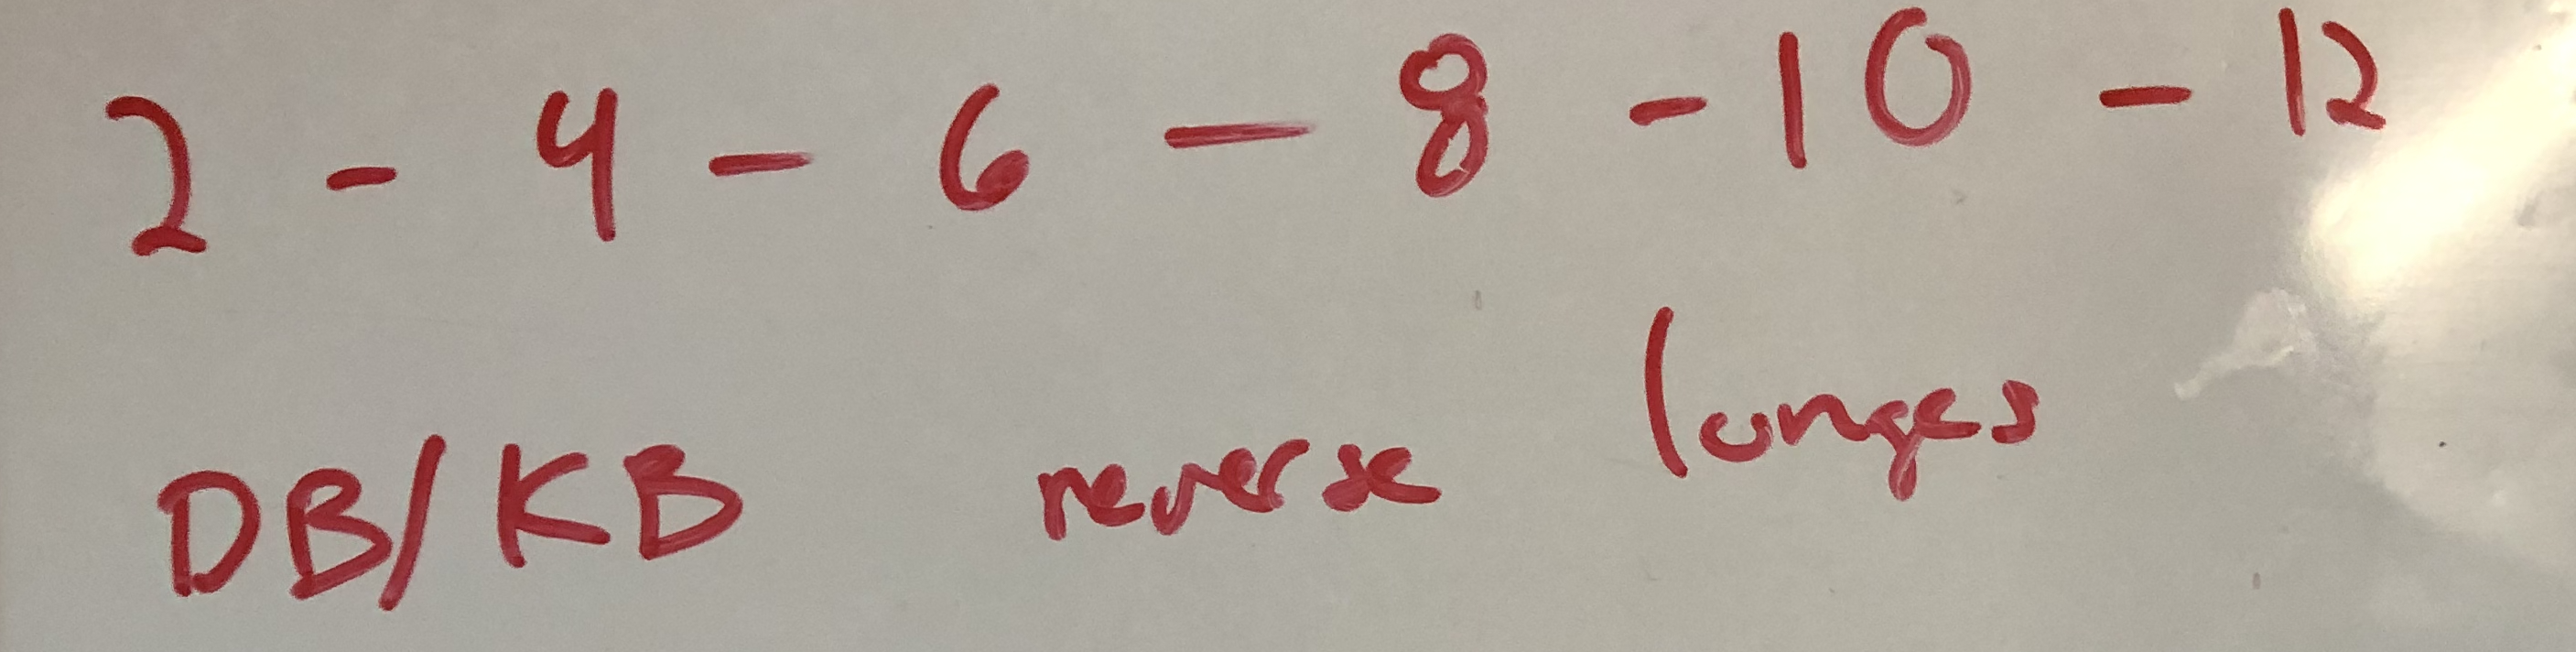 2 - 4 - 6 - 8 - 10 - 12
DB/KB reverse lunges